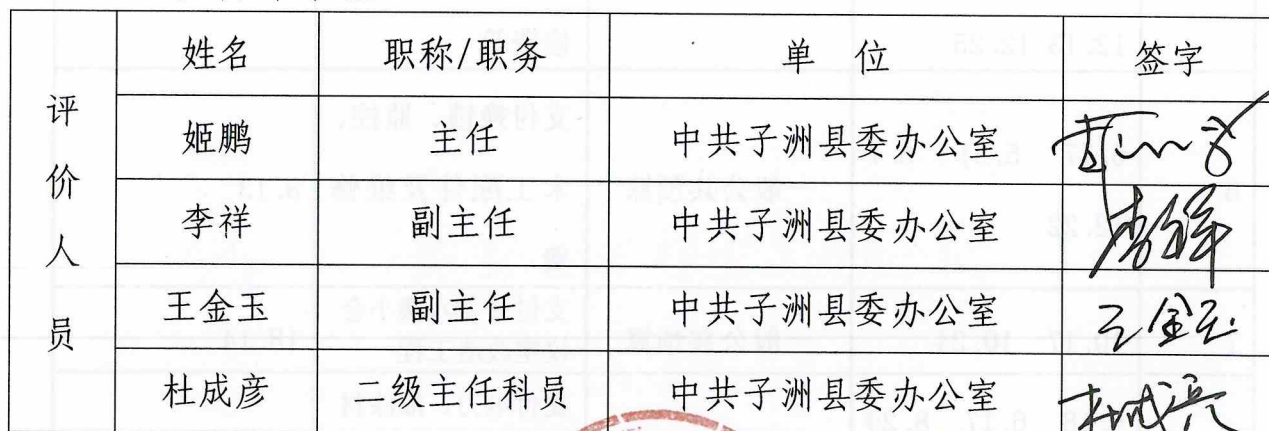 评价人员 姓名 职称/职务 单 位 签字
姬鹏 主任 中共子洲县委办公室
李祥 副主任 中共子洲县委办公室 李祥
王金玉 副主任 中共子洲县委办公室 王金玉
杜成彦 二级主任科员 中共子洲县委办公室 杜成彦